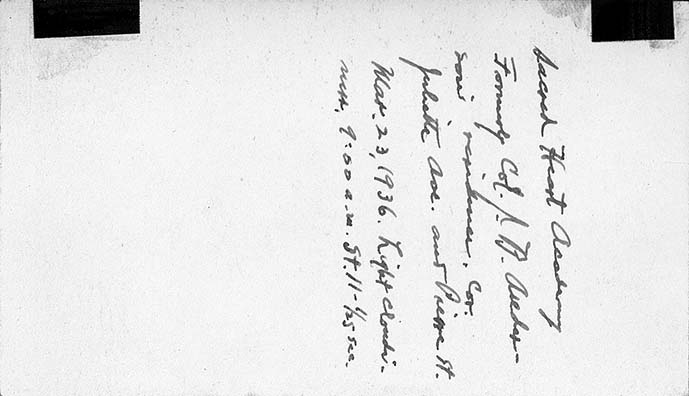 Sacred Heart Academy
Formerly Col. J. B. Ander-
son residence. Cor.
Juliette Ave. and Pierre St.
Mar. 23, 1936. Light cloudi-
ness, 9:00 a.m. St. 11- 1/25 sec.